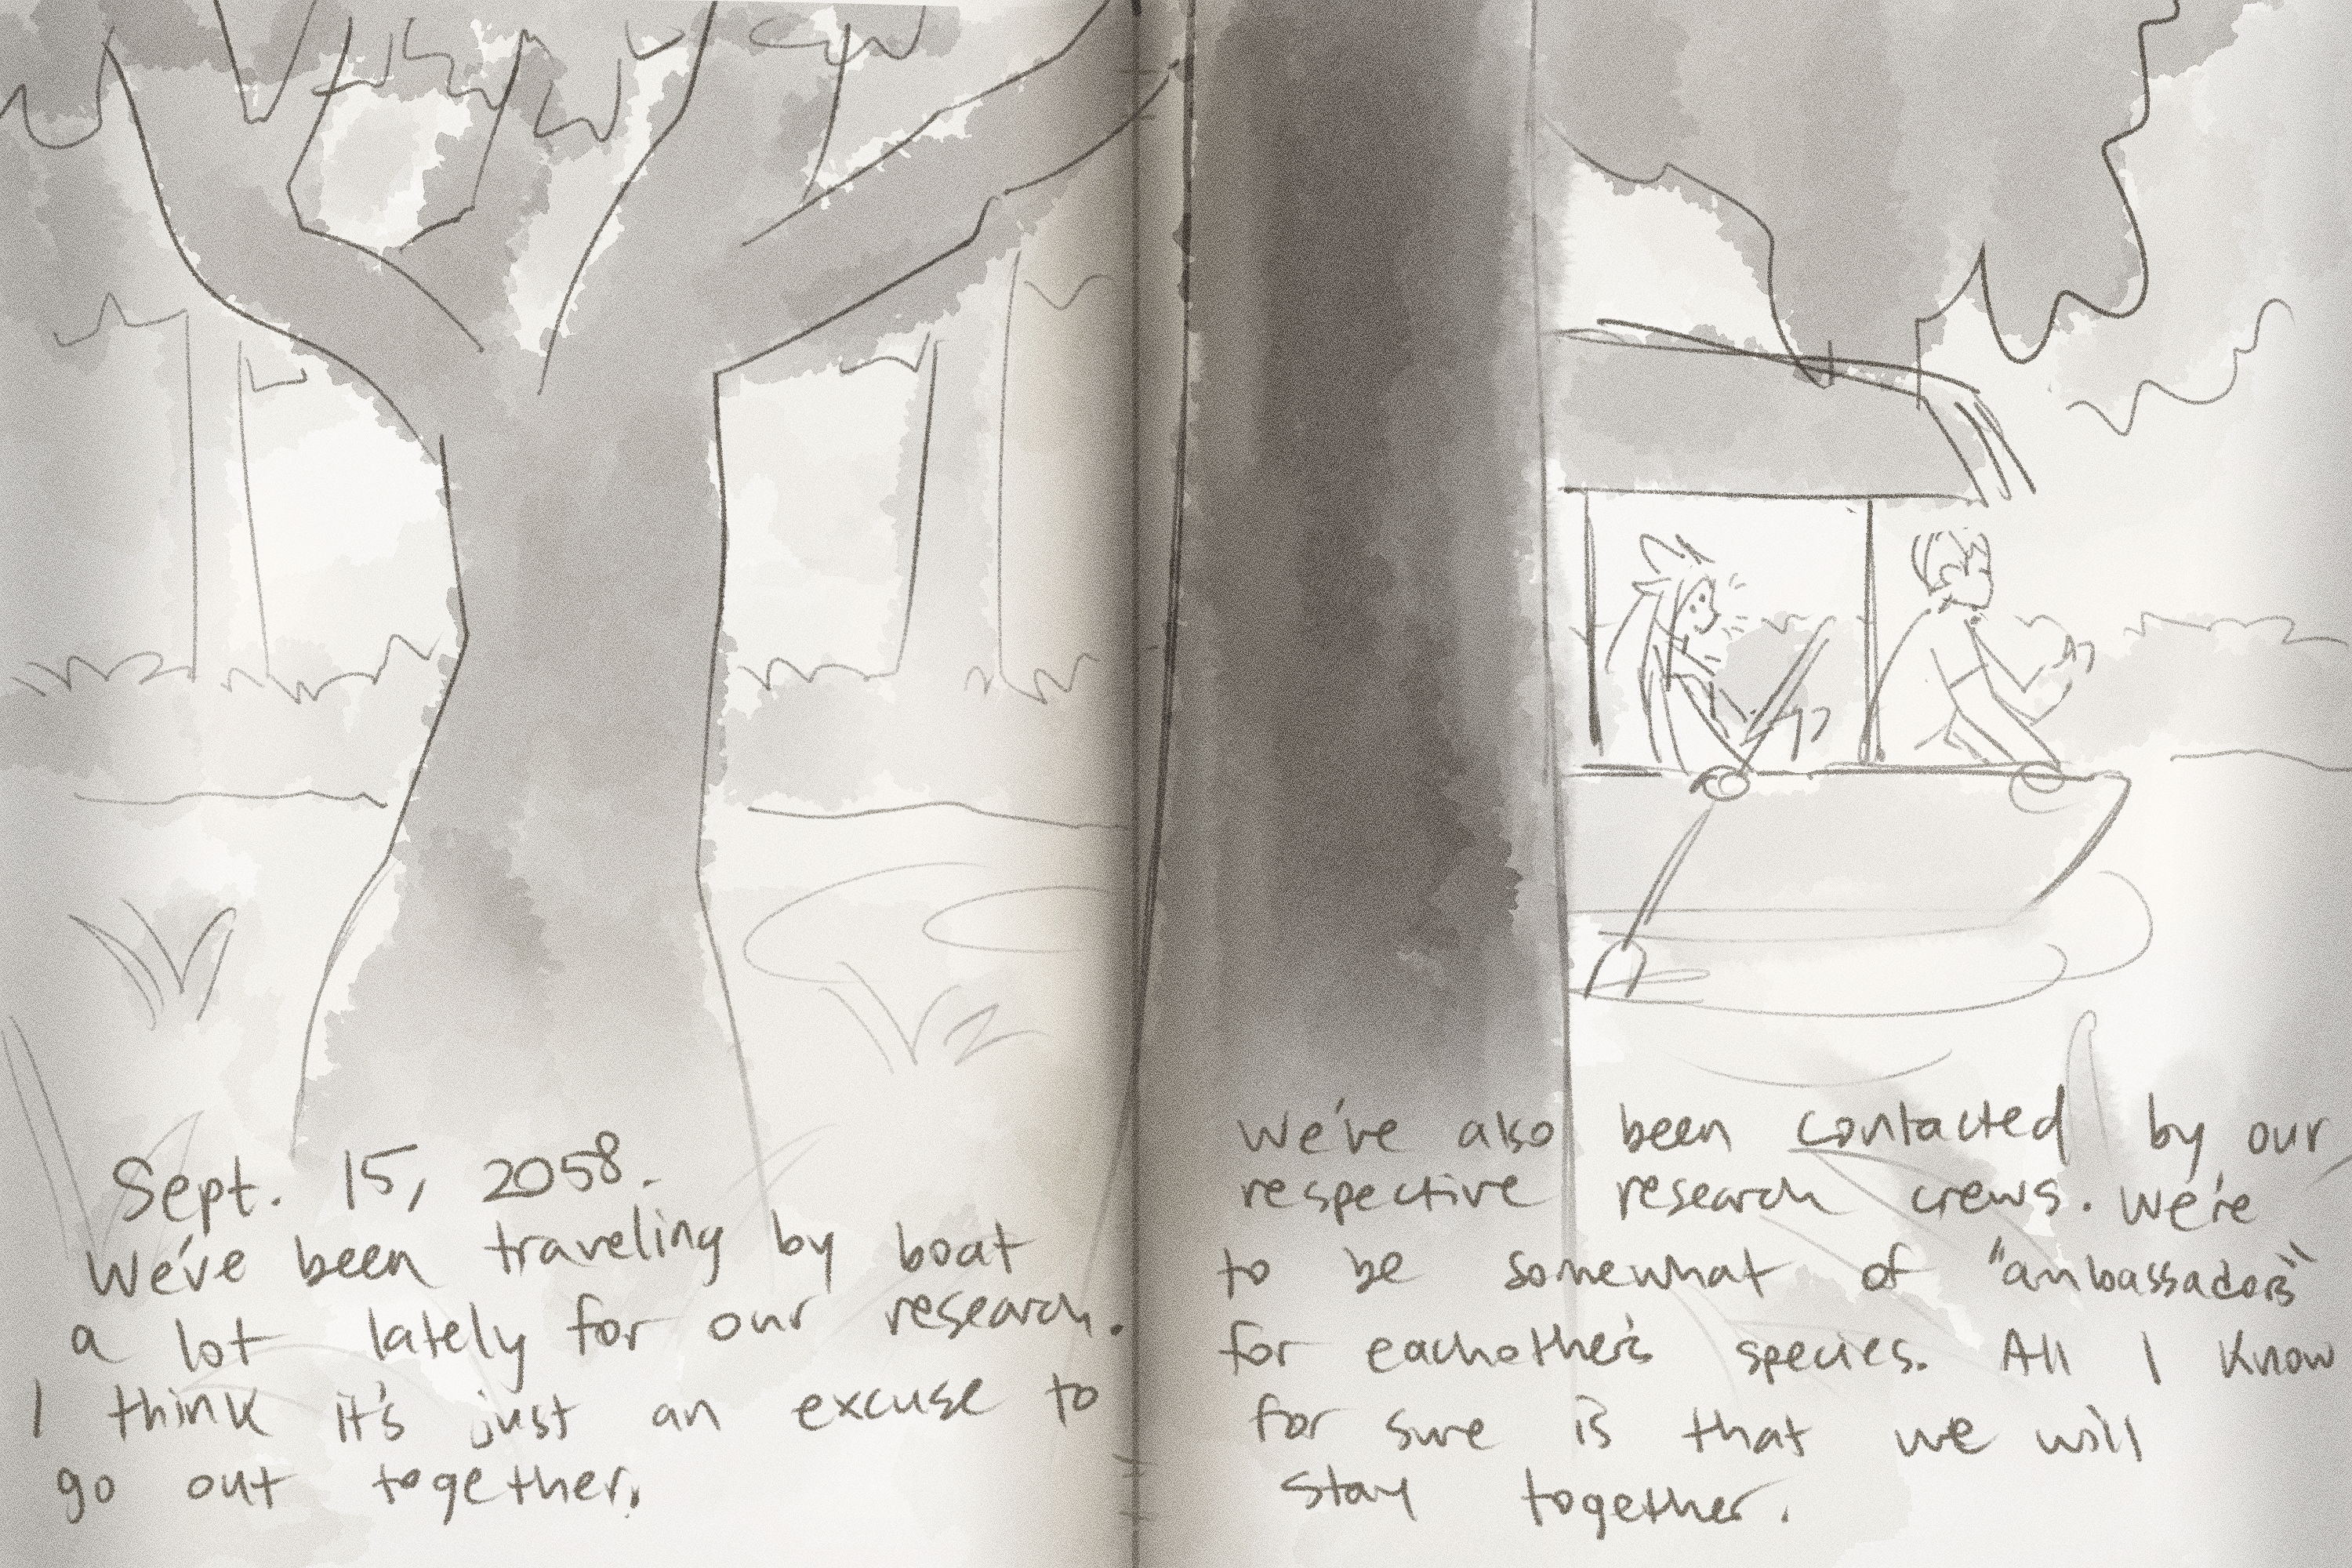 Sept. 15, 2058.
We've been traveling by boat
a lot lately for our research.
I think it's just an excuse to
go out together.
We've also been contacted by our
respective research crews. We're
to be somewhat of "ambassadors"
for eachother's species. All I know
for sure is that we will
stay together.